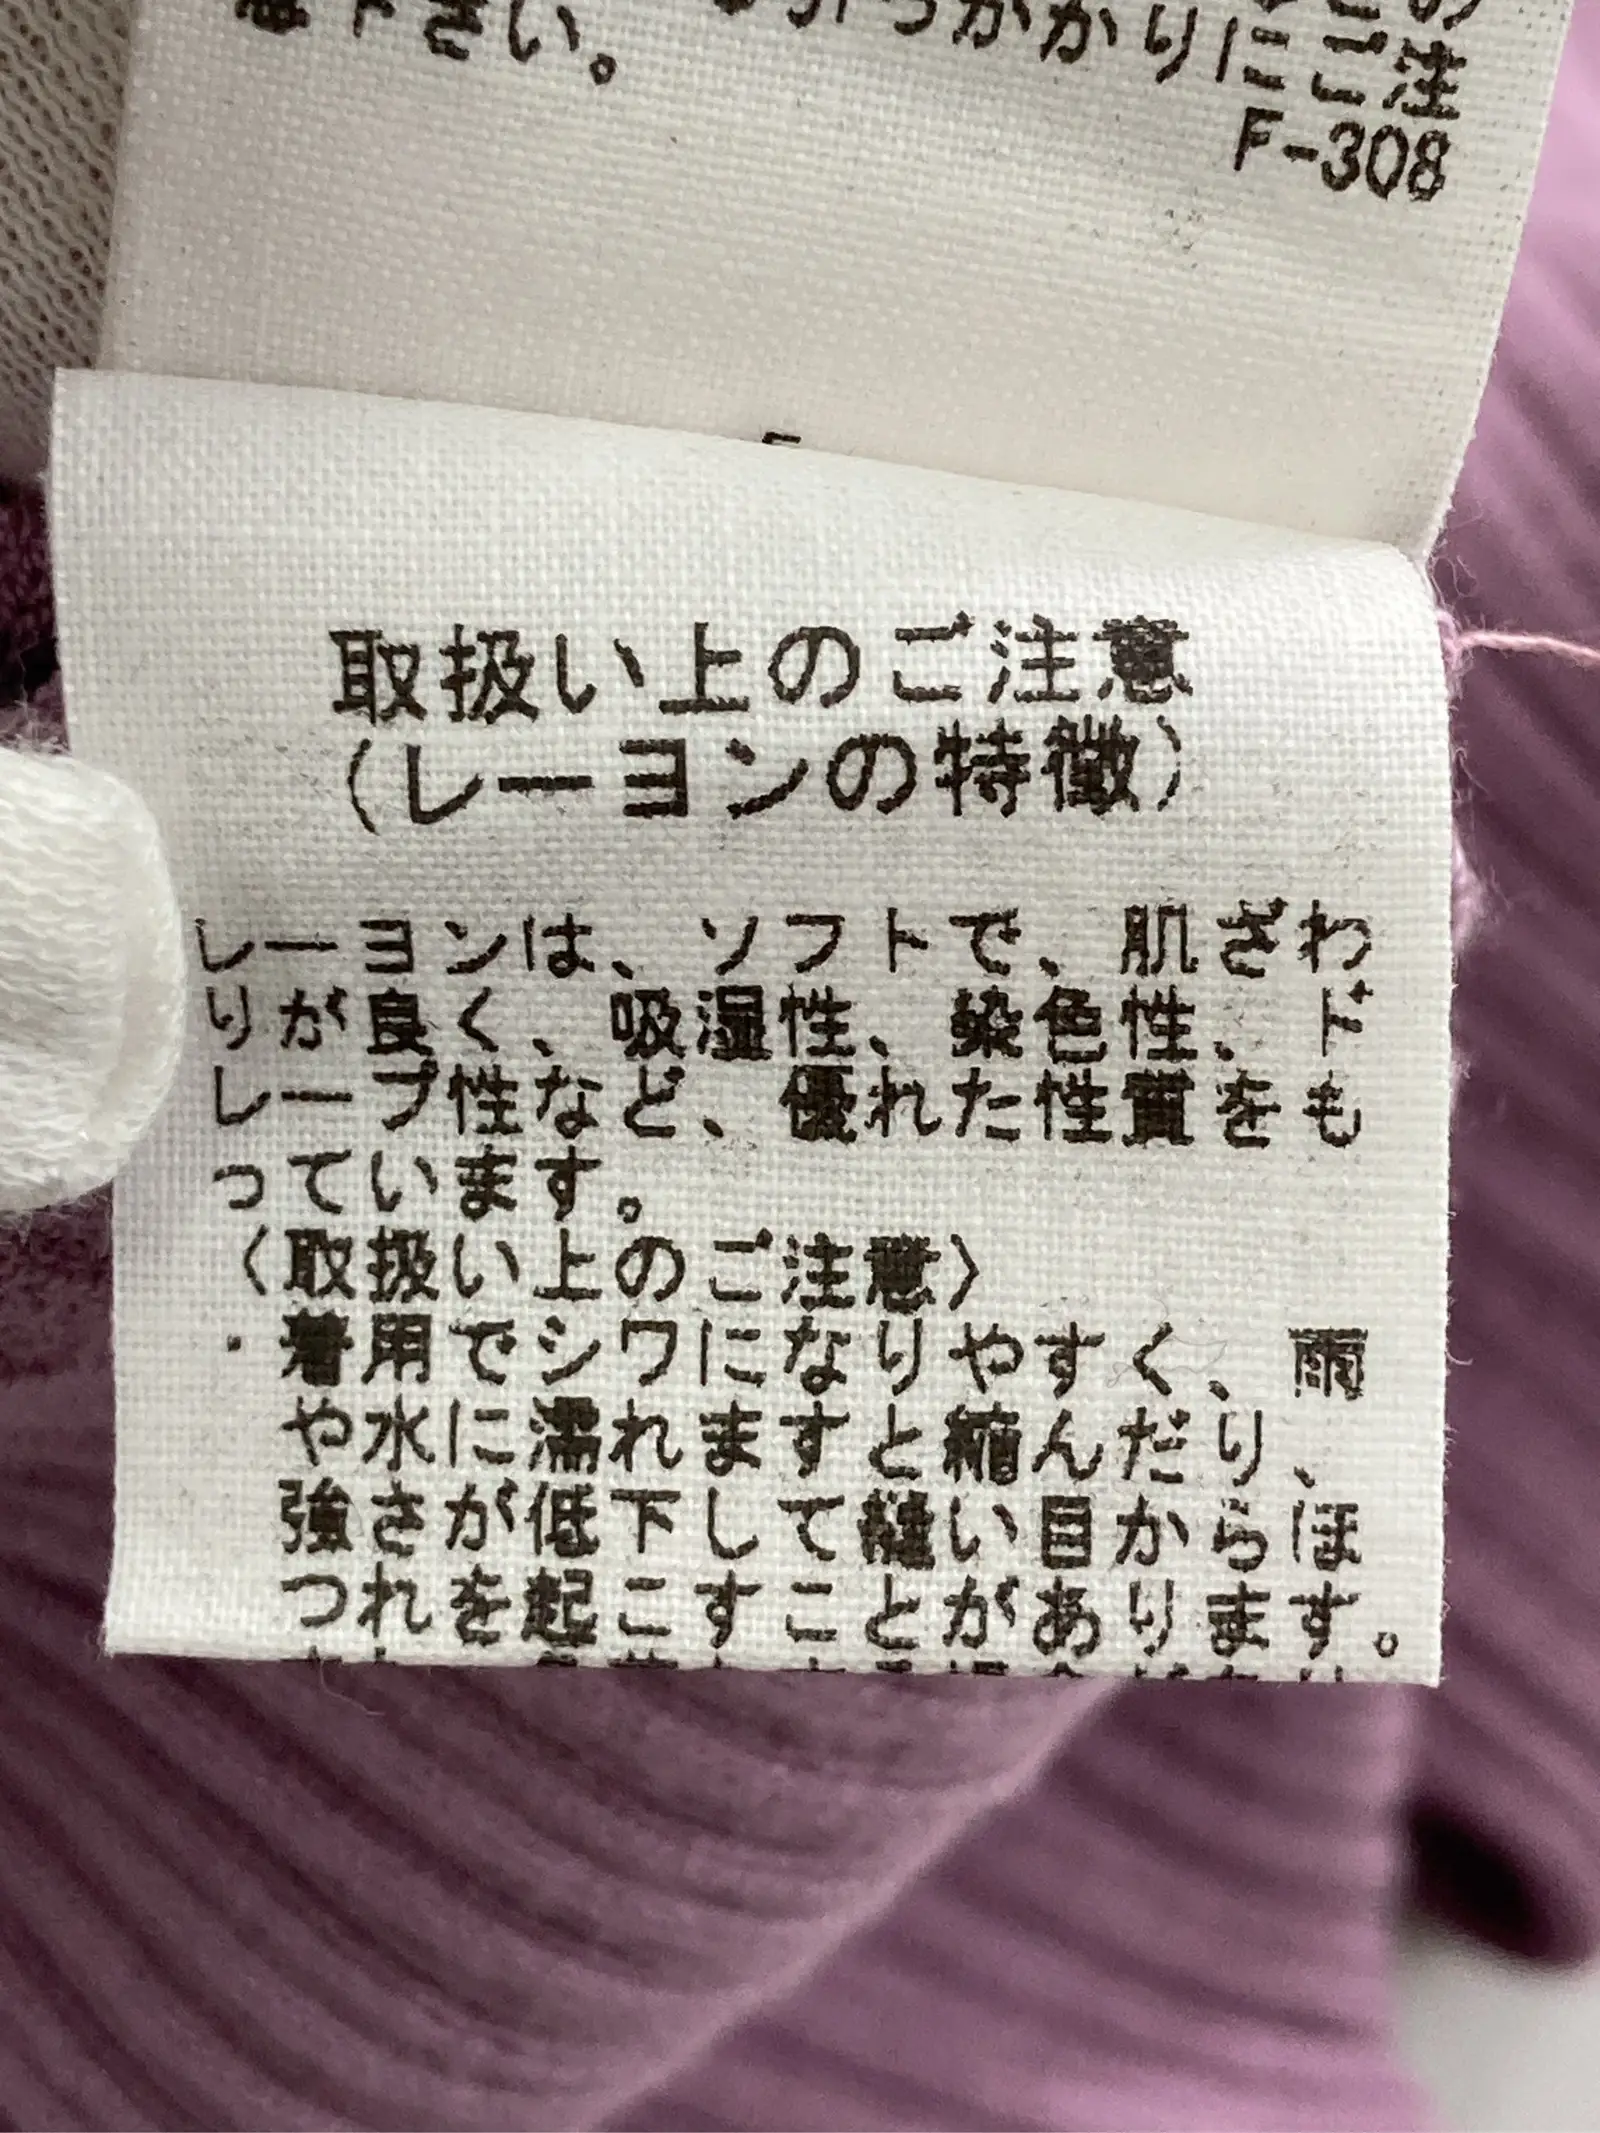 っかかりにご注
下さい。
F-308
取扱い上のご注意
(レーヨンの特徴)
レーヨンは、ソフトで、肌ざわ
りが良く、吸湿性、染色性、ド
レープ性など、優れた性質をも
っています。
〈取扱い上のご注意〉
・着用でシワになりやすく、雨
や水に濡れますと縮んだり、
強さが低下して縫い目からほ
つれを起こすことがあります。